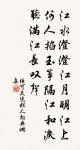 江水澄澄江月明江上
何人搊玉箏隔江和淚
聽滿江長叹聲